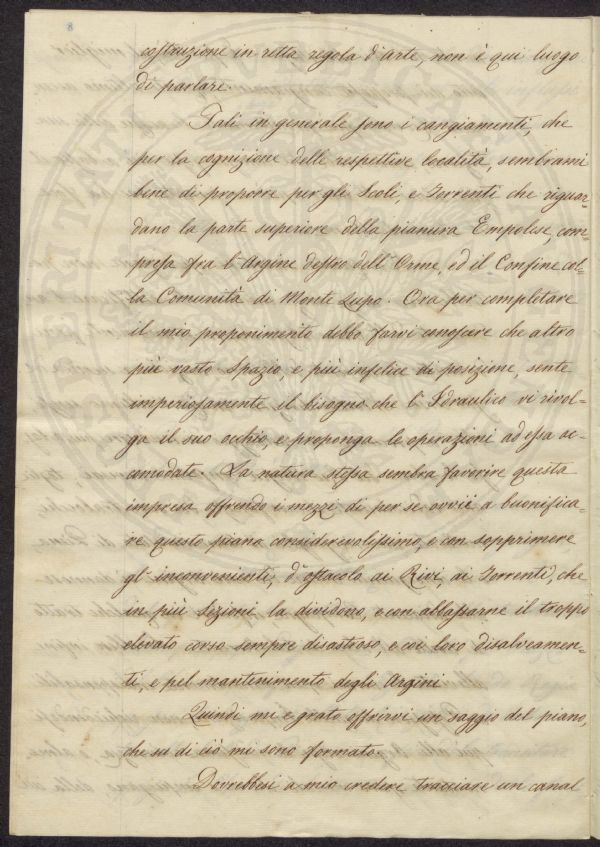 8
costruzione in retta regola d'arte, non è qui luogo
di parlare.
Tali in generale sono i cangiamenti, che
per la cognizione delle respettive località, sembrami
bene di proporre per gli Scoli, e Torrenti che riguar=
dano la parte superiore della pianura Empolese, com
presa fra l'Argine destro dell'Orme, ed il Confine col=
la Comunità di Monte Lupo. Ora per completare
il mio proponimento debbo farvi conoscere che altro
più vasto Spazio, e più infelice di posizione, sente
imperiosamente il bisogno che l'Idraulico vi rivol=
ga il suo occhio, e proponga le operazioni ad essa ac
comodate. La natura stessa sembra favorire questa
impresa offrendo i mezzi di per se ovvii a buonifica=
re questo piano considerevolissimo, e con sopprimere
gl'inconvenienti, d'ostacolo ai Rivi, ai Torrenti, che
in più Sezioni la dividono, e con abbassarne il troppo
elevato corso sempre disastroso, e coi loro disalveamen=
ti, e pel mantenimento degli Argini
Quindi mi e grato offrirvi un saggio del piano,
che su di ciò mi sono formato.
Dovrebbesi a mio credere tracciare un canal